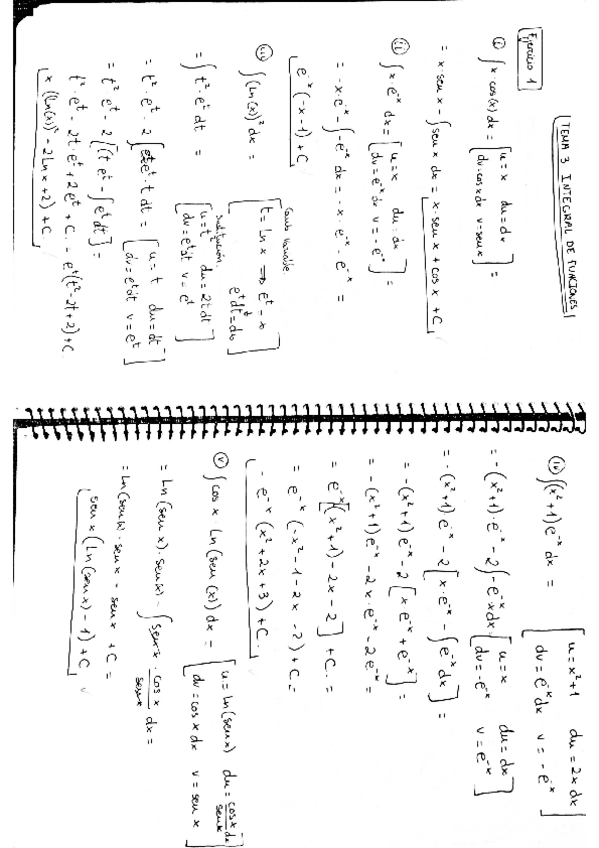 TEMA 3 INTEGRAL DE FUNCIONES
Ejercicio 1
i) ∫ x·cos(x) dx = [u=x du=dv
dv=cosx dx v=senx] =
= x·senx - ∫ senx dx = x·senx + cosx + C
ii) ∫ x·e^-x dx = [u=x du=dx
dv=e^-x dx v=-e^-x] =
= -x·e^-x - ∫ -e^-x dx = -x·e^-x - e^-x =
e^-x (-x-1) + C
iii) ∫ (ln(x))² dx =
Cambio Variable
[t = ln x => e^t = x
e^t dt = dx]
sustitución
= ∫ t²·e^t dt = [u=t² du=2t dt
dv=e^t dt v=e^t]
= t²·e^t - 2∫ e^t·t dt = [u=t du=dt
dv=e^t dt v=e^t]
= t²·e^t - 2[(t e^t - ∫ e^t dt] =
t²·e^t - 2t·e^t + 2e^t + C = e^t(t²-2t+2)+C
x ((ln(x))² - 2Lnx + 2) + C
iv) ∫ (x²+1)e^-x dx = [u=x²+1 du=2x dx
dv=e^-x dx v=-e^-x]
= -(x²+1)·e^-x - 2∫ -e^-x dx · [u=x du=dx
dv=-e^-x v=e^-x]
= -(x²+1)e^-x - 2[x·e^-x - ∫ e^-x dx] =
= -(x²+1)e^-x - 2[x e^-x + e^-x] =
= -(x²+1)e^-x - 2x·e^-x - 2e^-x =
= e^-x[-(x²+1) - 2x - 2] + C =
= e^-x (-x²-1-2x-2) + C =
-e^-x (x²+2x+3) + C
v) ∫ cosx Ln(sen(x)) dx = [u=Ln(senx) du=cosx/senx dx
dv=cosx dx v=senx]
= Ln(senx)·senx - ∫ senx · cosx/senx dx =
= Ln(senx)·senx - senx + C =
senx (Ln(senx) - 1) + C